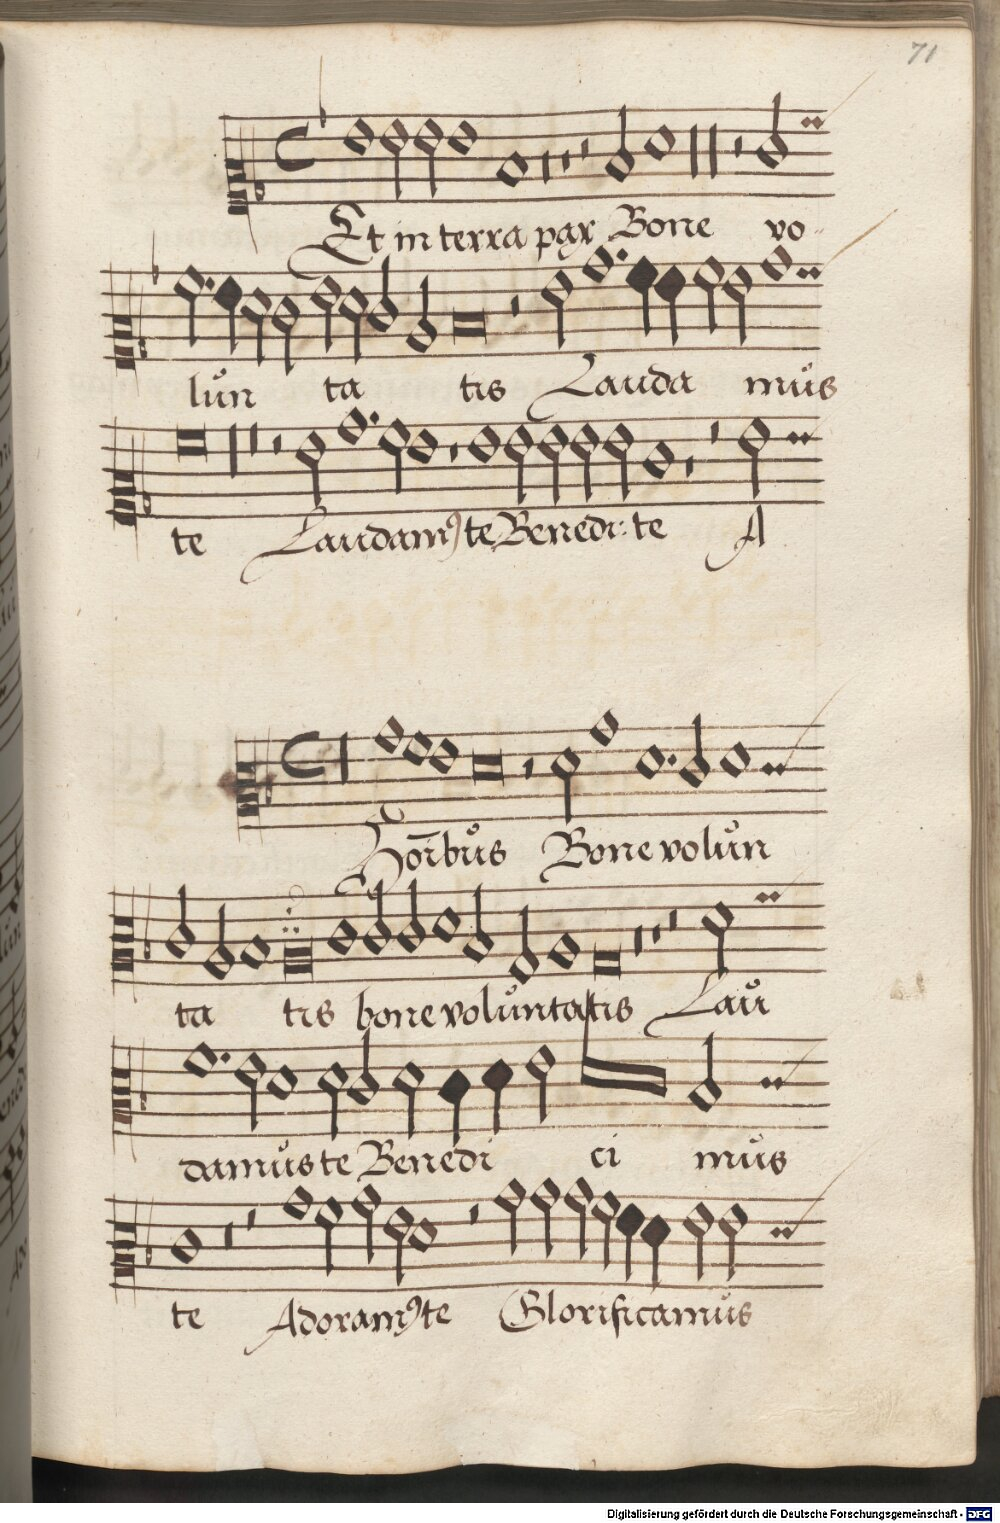 71
Et in terra pax Bone vo
lun ta tis Lauda mus
te Laudamꝰ te Benedi: te A
Hoībus Bone volun
ta tis bone voluntatis Lau
damus te Benedi ci mus
te Adoramꝰ te Glorificamus
Digitalisierung gefördert durch die Deutsche Forschungsgemeinschaft - DFG